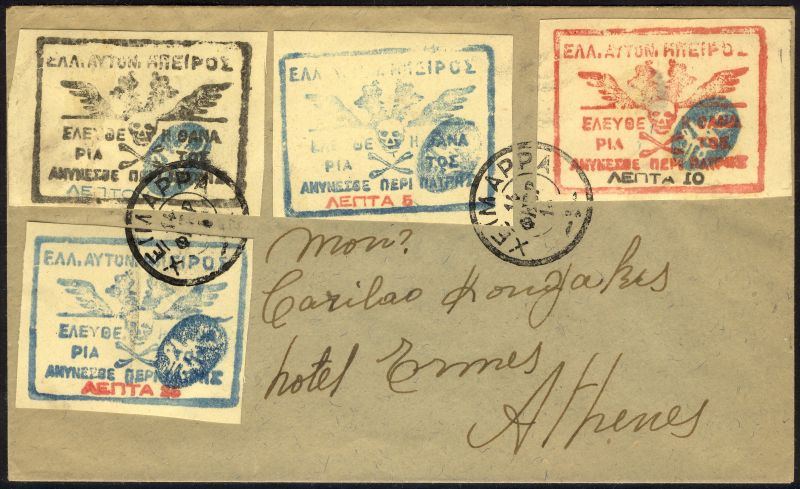 ΕΛΛ. ΑΥΤΟΝ. ΗΠΕΙΡΟΣ
ΕΛΕΥΘΕ Η ΘΑΝΑ
ΡΙΑ ΤΟΣ
ΑΜΥΝΕΣΘΕ ΠΕΡΙ
ΛΕΠΤΟ
ΕΛΛ. ΗΠΕΙΡΟΣ
ΕΛΕΥΘΕ Η ΘΑΝΑ
ΡΙΑ ΤΟΣ
ΑΜΥΝΕΣΘΕ ΠΕΡΙ ΠΑΤΡΗΣ
ΛΕΠΤΑ 5
ΕΛΛ. ΑΥΤΟΝ. ΗΠΕΙΡΟΣ
ΕΛΕΥΘΕ Η ΘΑΝΑ
ΡΙΑ ΤΟΣ
ΑΜΥΝΕΣΘΕ ΠΕΡΙ ΠΑΤΡΗΣ
ΛΕΠΤΑ 10
ΧΕΙΜΑΡΡΑ
ΧΕΙΜΑΡΡΑ
ΕΛΛ. ΑΥΤΟΝ. ΗΠΕΙΡΟΣ
ΕΛΕΥΘΕ
ΡΙΑ
ΑΜΥΝΕΣΘΕ ΠΕΡΙ ΠΑΤΡΗΣ
ΛΕΠΤΑ 25
Mon?
Carilao
hotel Ermes
Athenes